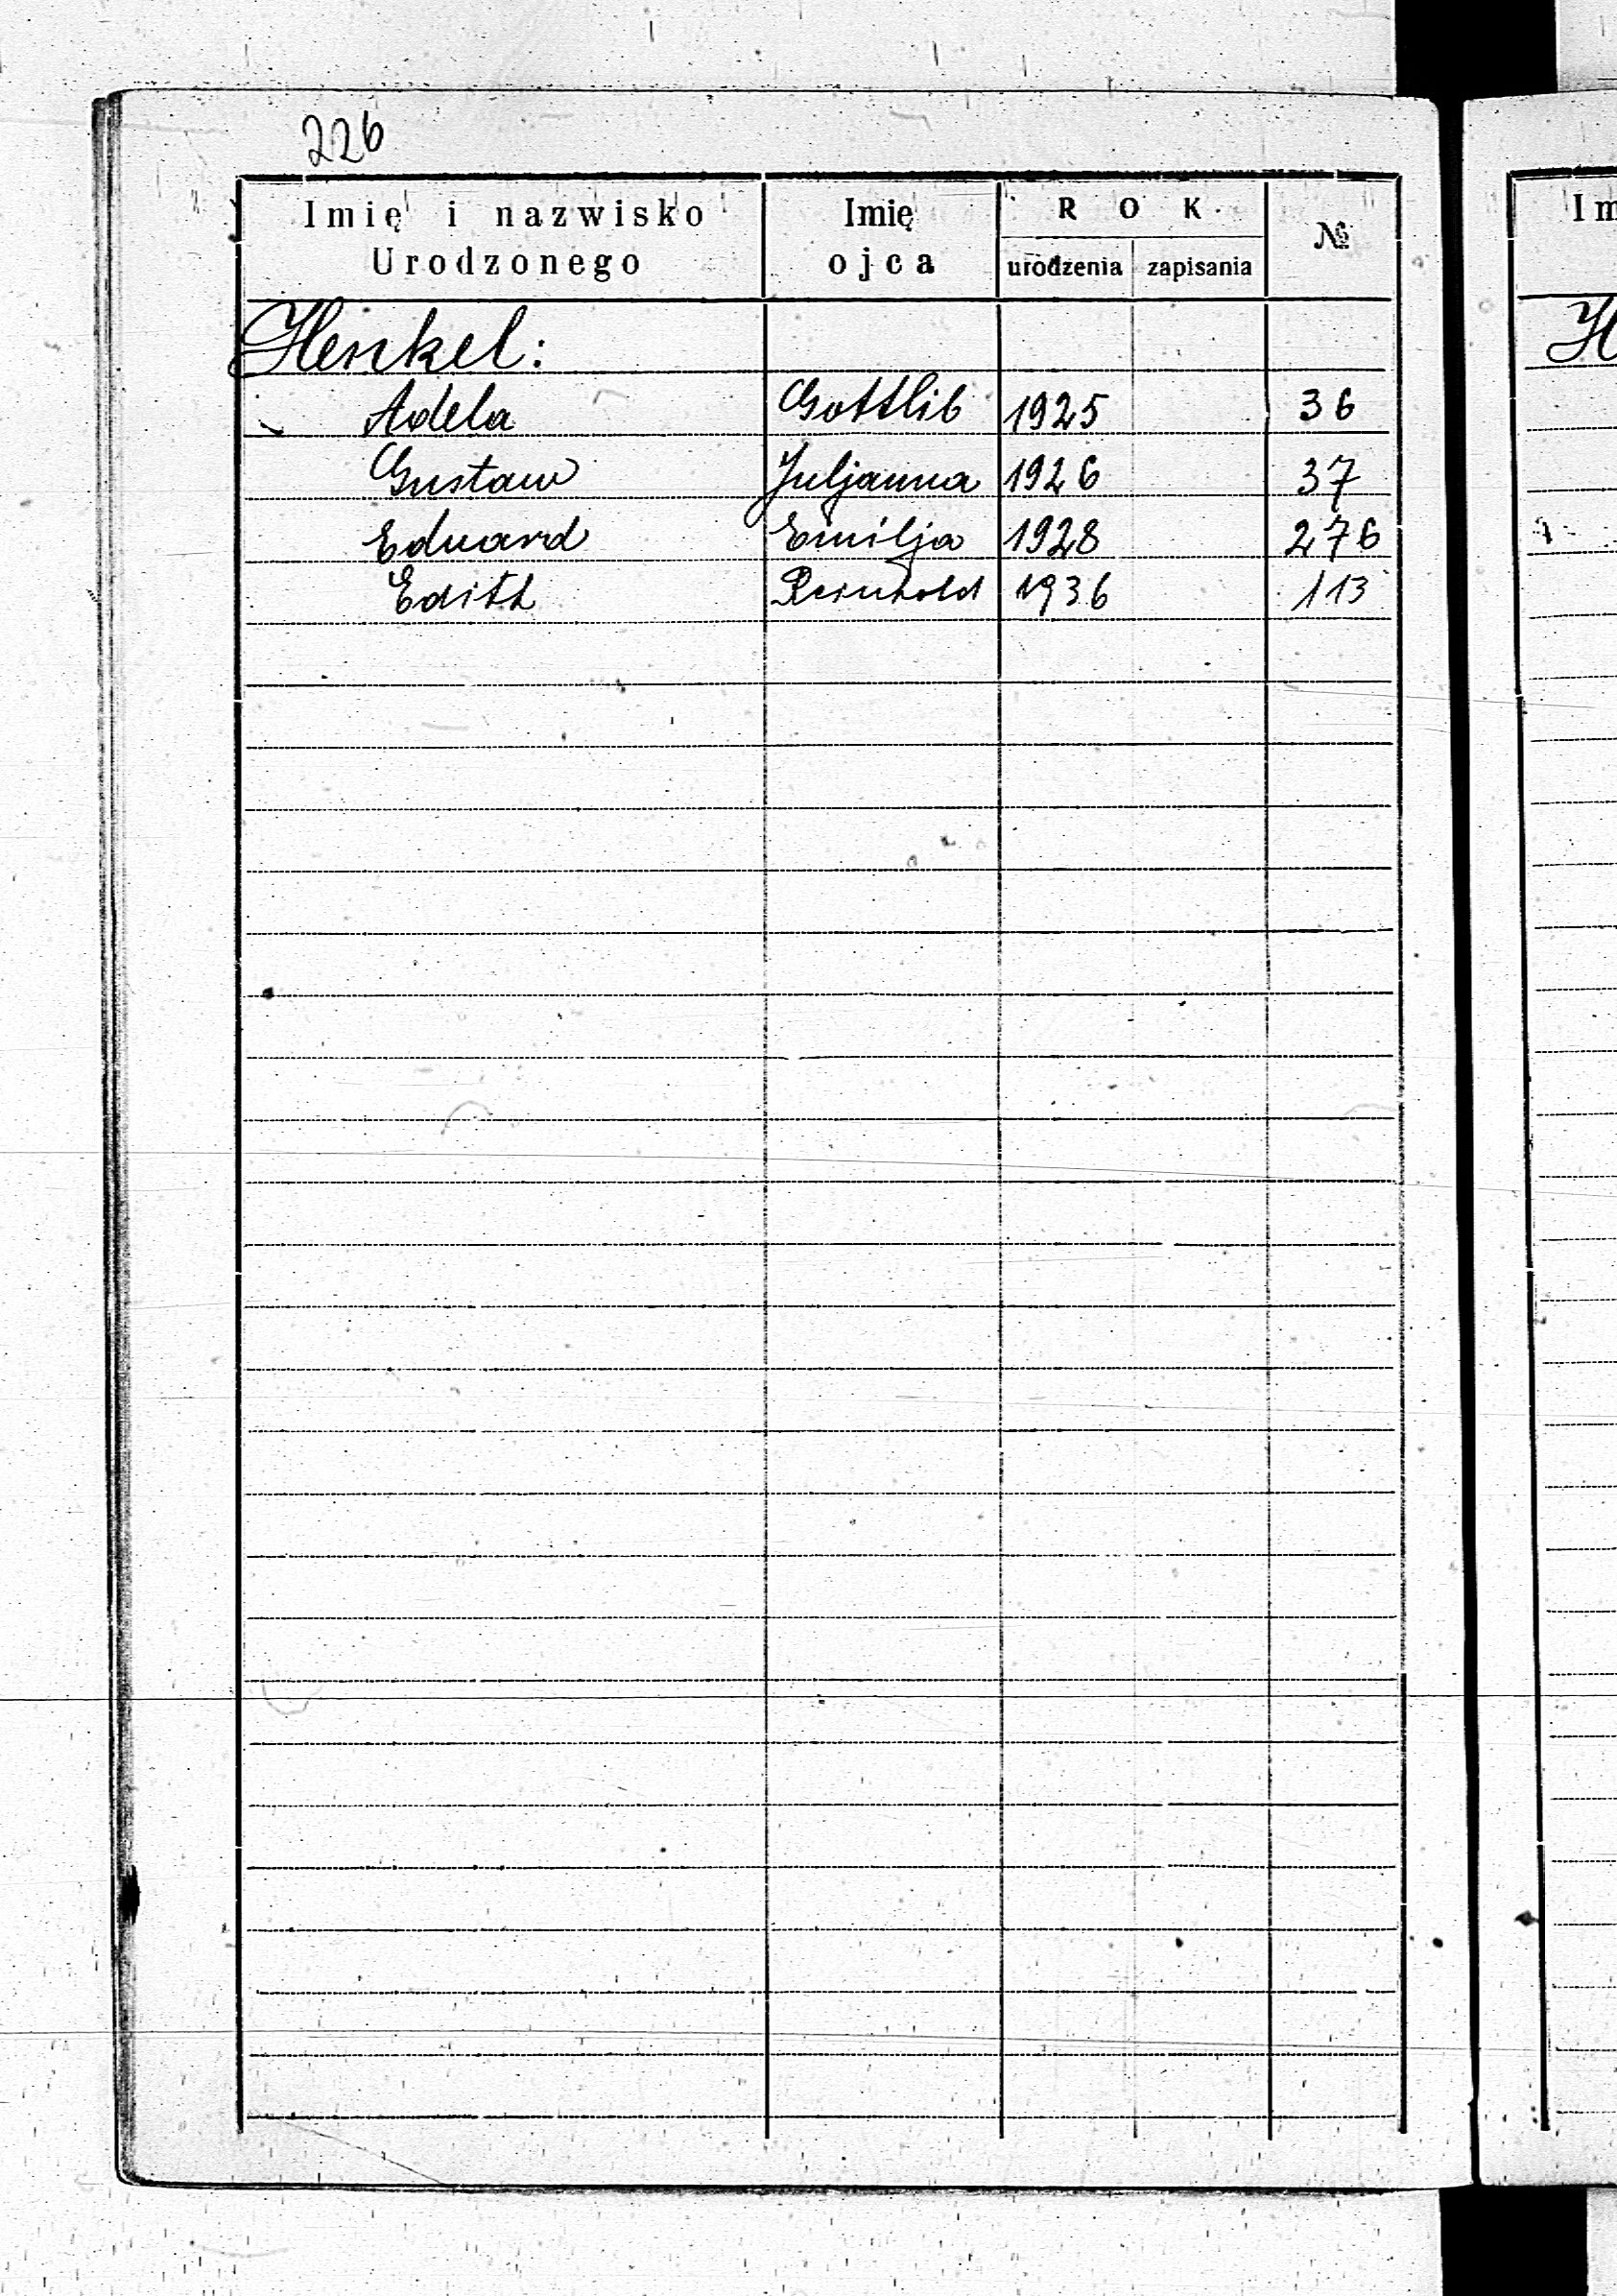 226
Imię i nazwisko Urodzonego Imię ojca ROK urodzenia zapisania №
Henkel:
Adela Gottlib 1925 36
Gustaw Juljanna 1926 37
Eduard Emilja 1928 276
Edith Reinhold 1936 113
Im
H